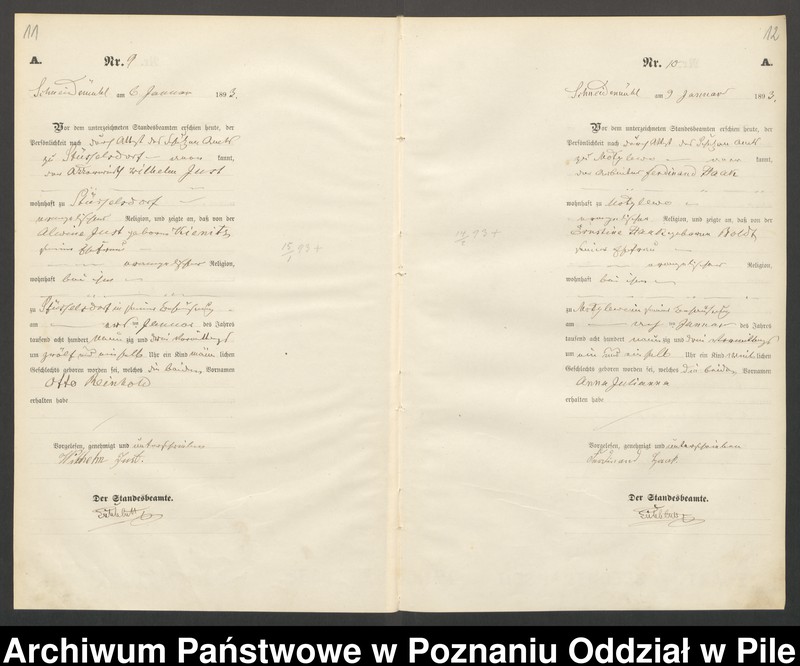 11
A. Nr. 9
Schneidemühl am 6 Januar 1893.
Vor dem unterzeichneten Standesbeamten erschien heute, der
Persönlichkeit nach durch Attest des Schulzen Amts
zu Stüsselsdorf kannt,
der Wilhelm Just
wohnhaft zu Stüsselsdorf
evangelischer Religion, und zeigte an, daß von der
Alwine Just geborene Kienitz,
seine Ehefrau
evangelischer Religion,
wohnhaft bei ihm
zu Stüsselsdorf in seiner Behausung
am Januar des Jahres
tausend acht hundert neunzig und drei Vormittags
um zwölf und ein halb Uhr ein Kind männlichen
Geschlechts geboren worden sei, welches die beiden Vornamen
Otto Reinhold
erhalten habe
Vorgelesen, genehmigt und unterschrieben
Wilhelm Just.
Der Standesbeamte.
15/1 93 +
12
Nr. 10 A.
Schneidemühl am 9 Januar 1893.
Vor dem unterzeichneten Standesbeamten erschien heute, der
Persönlichkeit nach durch Attest des Schulzen Amts
zu Motylewo kannt,
der Arbeiter Ferdinand Haak
wohnhaft zu Motylewo
evangelischer Religion, und zeigte an, daß von der
Ernstine Haak geborene Boldt
seiner Ehefrau
evangelischer Religion,
wohnhaft bei ihm
zu Motylewo in seiner Behausung
am Januar des Jahres
tausend acht hundert neunzig und drei Vormittags
um ein und ein halb Uhr ein Kind weiblichen
Geschlechts geboren worden sei, welches die beiden Vornamen
Anna Julianna
erhalten habe
Vorgelesen, genehmigt und unterschrieben
Ferdinand Haak
Der Standesbeamte.
93 +
Archiwum Państwowe w Poznaniu Oddział w Pile